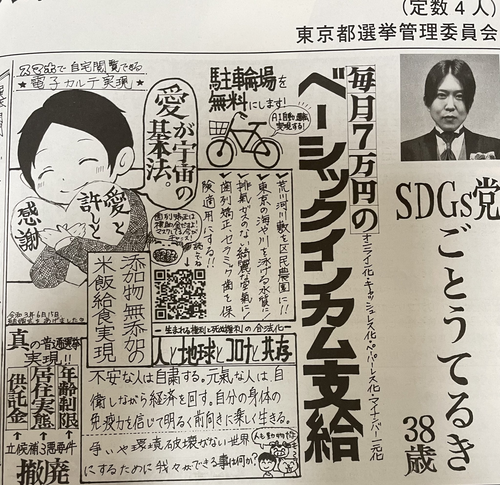 （定数４人）
東京都選挙管理委員会
SDGs党
ごとうてるき
38歳
毎月7万円の
ベーシックインカム支給
オンライン化・キャッシュレス化・ペーパーレス化・マイナンバー一元化
駐輪場を
無料にします！
愛が宇宙の
基本法。
スマホで自宅閲覧できる
★電子カルテ実現★
愛と
許しと
感謝
荒川河川敷を区民農園に!!
東京の海や川を泳げる水質に!
排気ガスのない綺麗な空気に!
歯列矯正、セラミック歯を保
険適用にする!!
添加物無添加の
米飯給食実現
令和3年6月15日
生まれる権利と死ぬ権利の合法化
人と地球とコロナと共存
不安な人は自粛する。元気な人は自
衛しながら経済を回す。自分の身体の
免疫力を信じて明るく前向きに楽しく生きる。
争いや環境破壊がない世界
にするために我々ができる事は何か?
人も動物だ
真の普通選挙
実現!!
年齢制限
居住実態
供託金
立候補3悪要件
撤廃